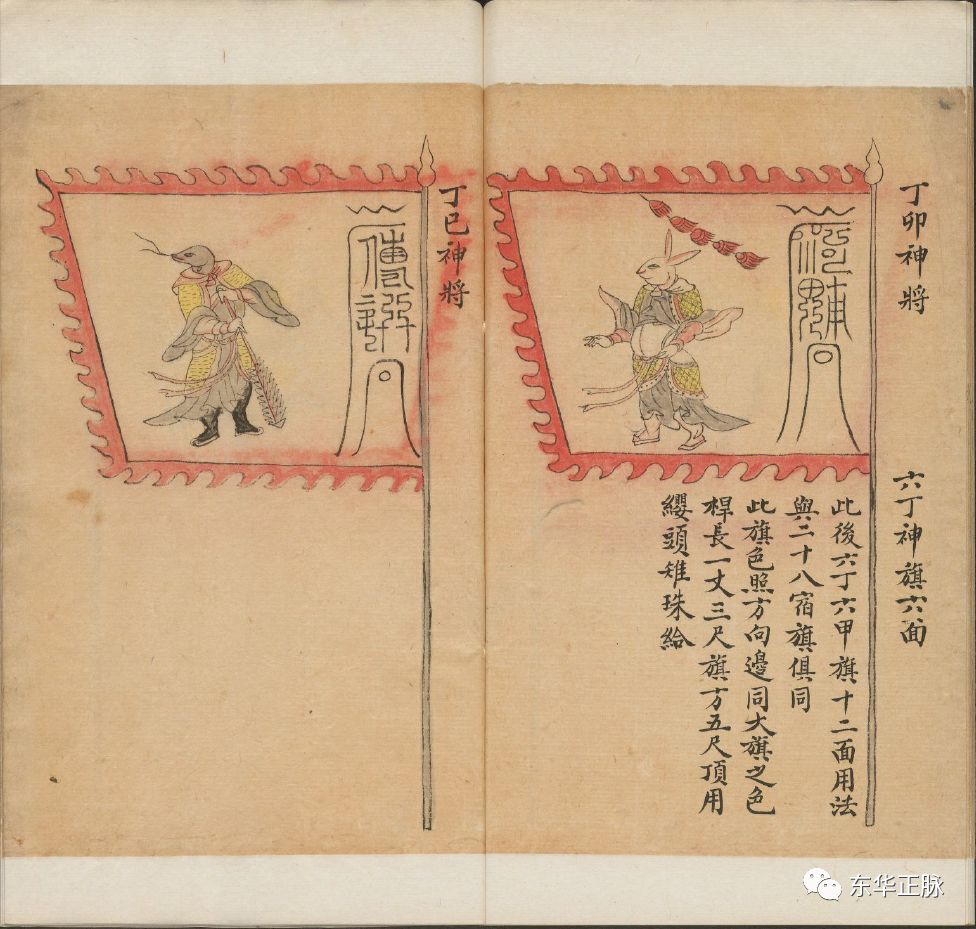 丁卯神將
六丁神旗六面
此後六丁六甲旗十二面用法
與二十八宿旗俱同
此旗色照方向邊同大旗之色
桿長一丈三尺旗方五尺頂用
纓頭雉珠給
丁巳神將
东华正脉